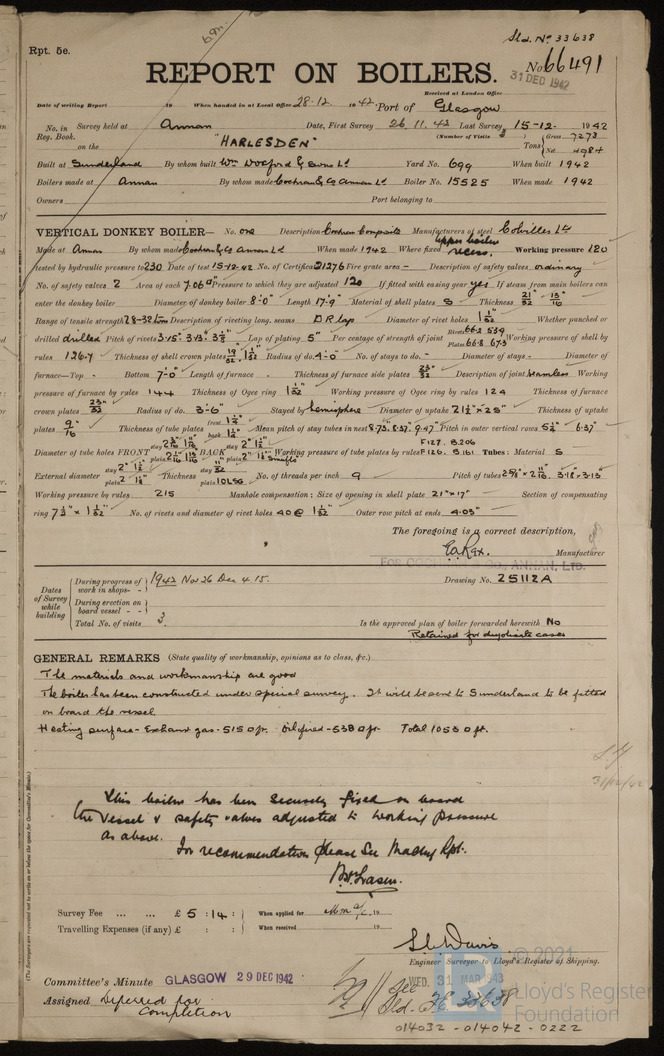 Sld. No 33638
Rpt. 5e.
No. 66491
REPORT ON BOILERS.
31 DEC 1942
Received at London Office
Date of writing Report 19 When handed in at Local Office 28-12. 1942. Port of Glasgow
No. in Survey held at Annan Date, First Survey 26.11.42 Last Survey 15-12- 1942
Reg. Book. (Number of Visits 3 Gross 7273
on the "HARLESDEN" Tons Net
Built at Sunderland By whom built Yard No. 699 When built 1942
Boilers made at Annan By whom made Cochran & Co Annan Ld Boiler No. 15525 When made 1942
Owners Port belonging to
VERTICAL DONKEY BOILER— No. one Description Cochran Composite Manufacturers of steel Colvilles Ld
Made at Annan By whom made Cochran & Co Annan Ld When made 1942 Where fixed upper boiler recess. Working pressure 120
tested by hydraulic pressure to 230 Date of test 15-12-42 No. of Certificate 21276 Fire grate area - Description of safety valves ordinary
No. of safety valves 2 Area of each 7.06□" Pressure to which they are adjusted 120 If fitted with easing gear yes If steam from main boilers can
enter the donkey boiler Diameter of donkey boiler 8'-0" Length 17'-9" Material of shell plates S Thickness 21/32" 13/16"
Range of tensile strength 28-32 tons Description of riveting long. seams D R lap Diameter of rivet holes 1 1/32" Whether punched or
drilled drilled Pitch of rivets Lap of plating 5" Per centage of strength of joint Rivets 66.2 53.9 Plates 66.8 67.3 Working pressure of shell by
rules 126.7 Thickness of shell crown plates Radius of do. 4'-0" No. of stays to do. - Diameter of stays - Diameter of
furnace—Top - Bottom 7'-0" Length of furnace - Thickness of furnace side plates 23/32" Description of joint seamless Working
pressure of furnace by rules 144 Thickness of Ogee ring 1 1/32" Working pressure of Ogee ring by rules 124 Thickness of furnace
crown plates 23/32" Radius of do. 3'-6" Stayed by hemisphere Diameter of uptake 21½" x 25" Thickness of uptake
plates 9/16 Thickness of tube plates front 1¼" back 1¼" Mean pitch of stay tubes in nest 8.73. 8.37. 9.47" Pitch in outer vertical rows 5¼" 6.37"
F127. B206
Diameter of tube holes FRONT stay plain BACK stay plain Working pressure of tube plates by rules F126. B161 Tubes: Material S
External diameter stay plain Thickness stay 11/32 plain 10LSG No. of threads per inch 9 Pitch of tubes
Working pressure by rules 215 Manhole compensation: Size of opening in shell plate 21" x 17" Section of compensating
ring 7½" x 1 1/32" No. of rivets and diameter of rivet holes 40 @ 1 1/32" Outer row pitch at ends 4.03"
The foregoing is a correct description,
Manufacturer
FOR COCHRAN & CO., ANNAN, LTD.
Dates of Survey while building During progress of work in shops- - 1942 Nov 26 Dec 4.15. Drawing No. 25112A
During erection on board vessel - -
Total No. of visits 3. Is the approved plan of boiler forwarded herewith No
Retained for duplicate cases
GENERAL REMARKS (State quality of workmanship, opinions as to class, &c.)
The materials and workmanship are good
The boiler has been constructed under special survey. It will be sent to Sunderland to be fitted
on board the vessel
Heating surface - Exhaust gas - 515□ft. Oil fired - 538□ft. Total 1053□ft.
31/12/42
This boiler has been securely fixed on board
the vessel & safety valves adjusted to working pressure
as above.
For recommendation please see Machy Rpt.
Survey Fee ... ... £ 5 : 14 : When applied for 19
Travelling Expenses (if any) £ : : When received 19
Engineer Surveyor to Lloyd's Register of Shipping.
Committee's Minute GLASGOW 29 DEC 1942 WED. 31 MAR 1943
Assigned Deferred for completion See Sld. F.E. 33638
© 2021
Lloyd's Register
Foundation
014032 - 014042 - 0222